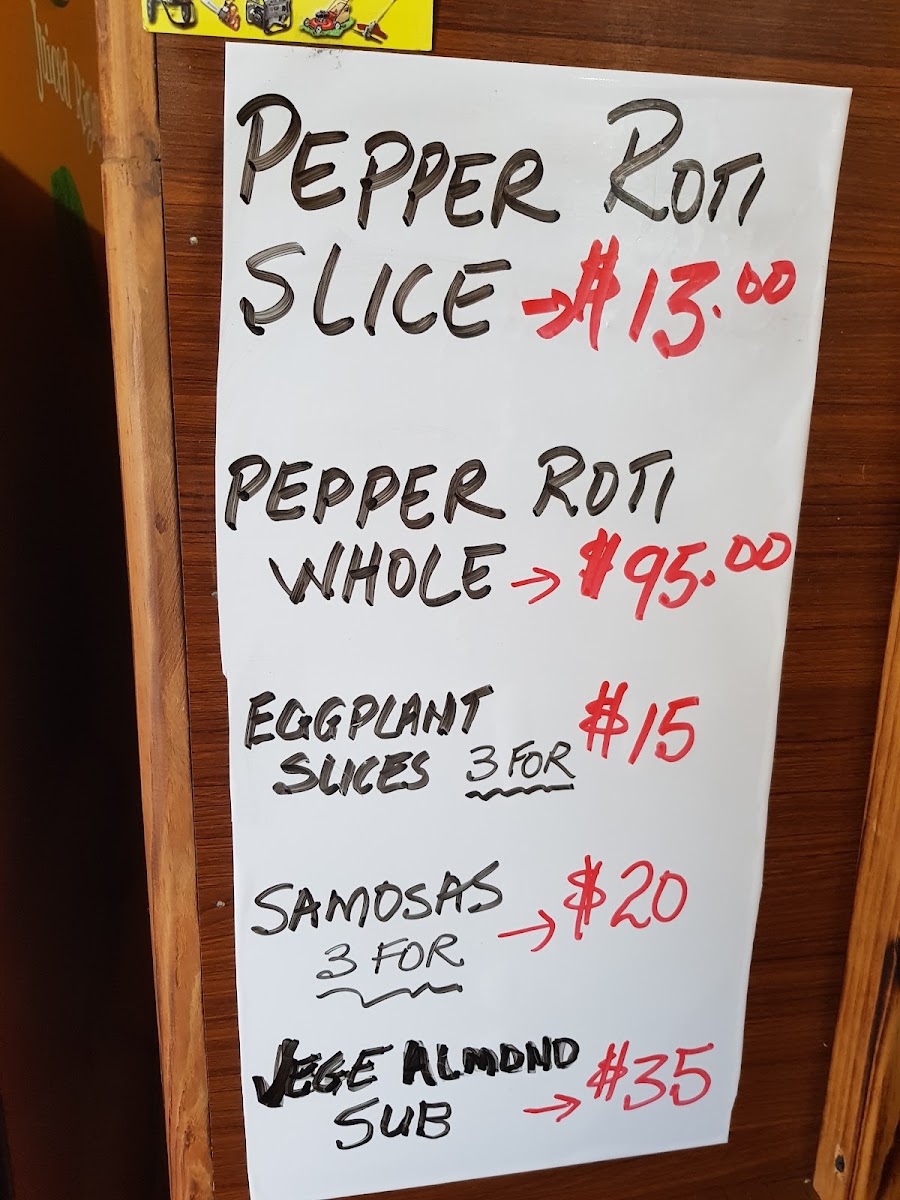 PEPPER ROTI
SLICE → $13.00
PEPPER ROTI
WHOLE → $95.00
EGGPLANT $15
SLICES 3 FOR
SAMOSAS → $20
3 FOR
VEGE ALMOND
SUB → $35